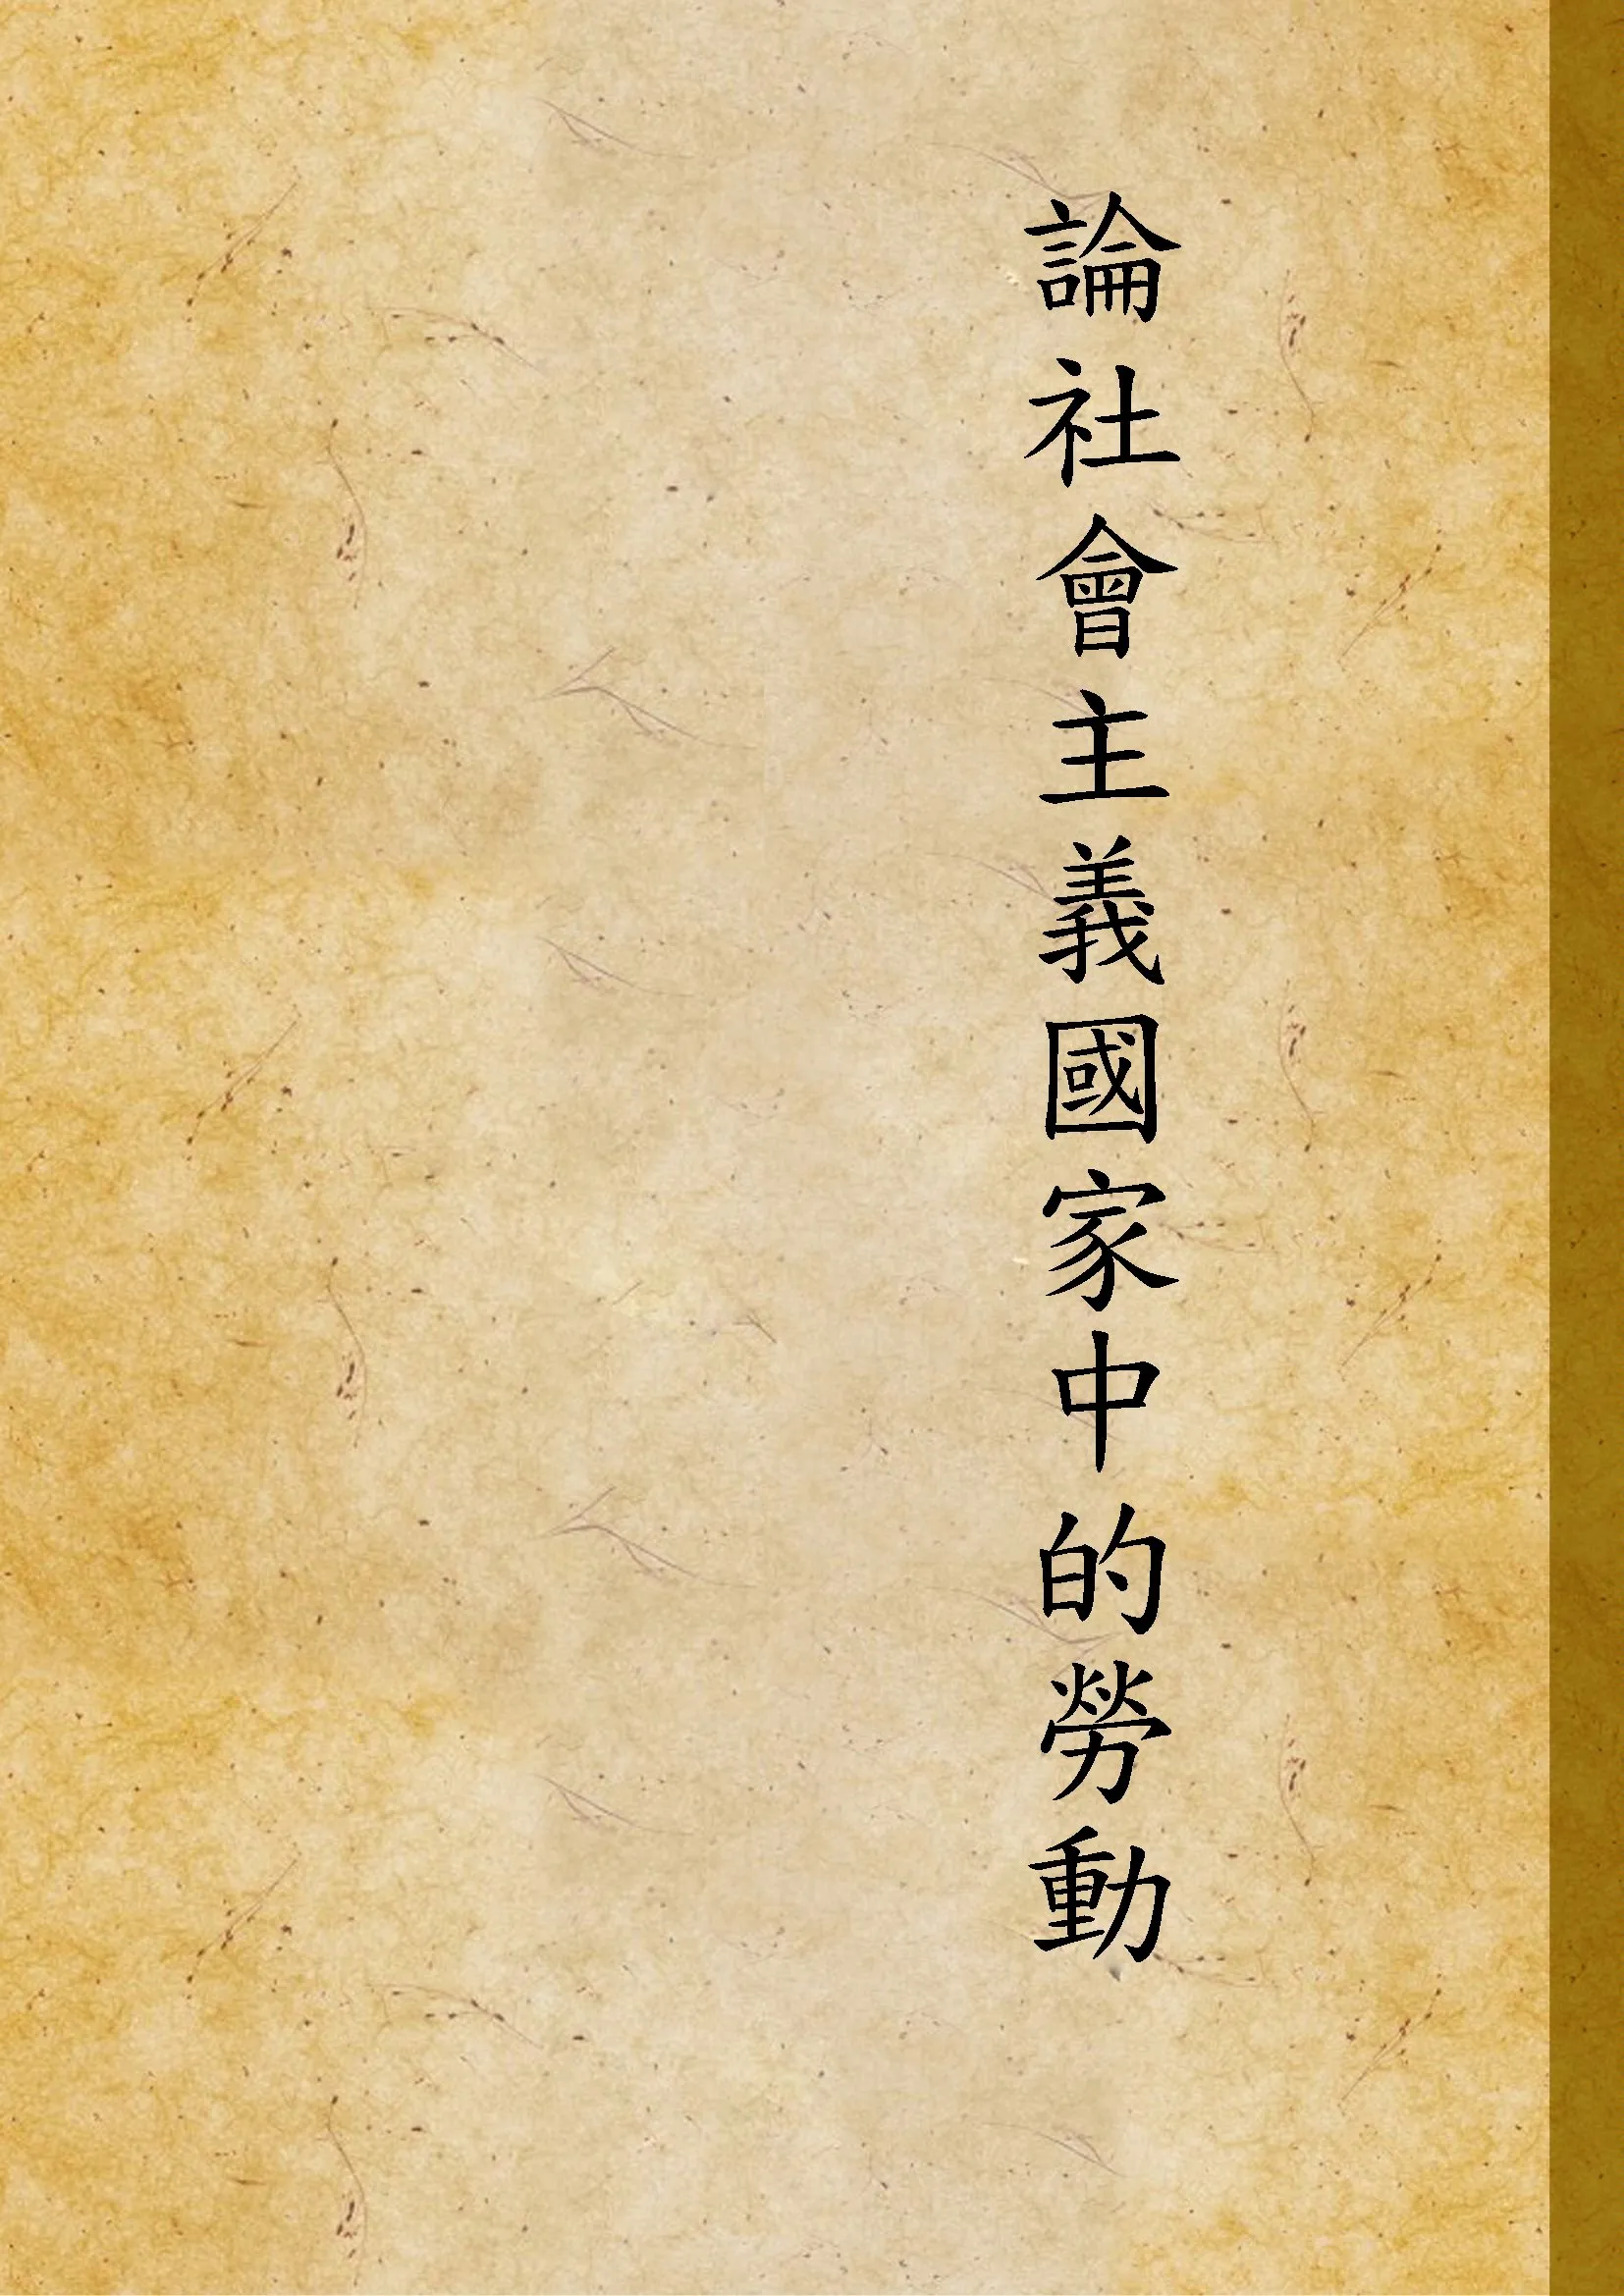 論社會主義國家中的勞動